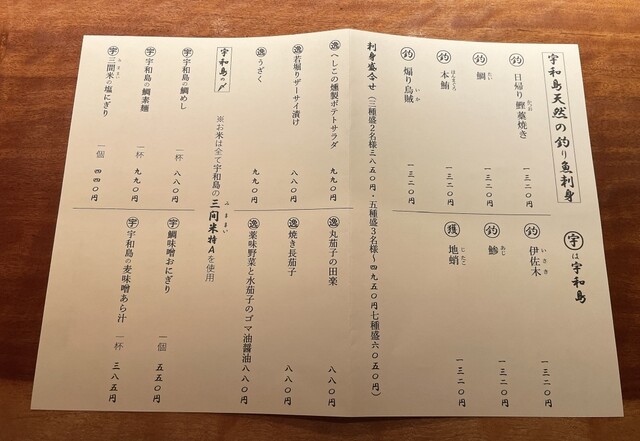 宇和島天然の釣り魚刺身
㊫は宇和島
釣 日帰り鰹藁焼き 一三二〇円
かつお
釣 鯛 一三二〇円
たい
釣 本鮪 一三二〇円
ほんまぐろ
釣 煽り烏賊 一三二〇円
いか
釣 伊佐木 一三二〇円
いさき
釣 鯵 一三二〇円
あじ
獲 地蛸 一三二〇円
じたこ
刺身盛合せ（三種盛２名様三八五〇円・五種盛３名様〜四九五〇円七種盛六〇五〇円）
逸 へしこの燻製ポテトサラダ 九九〇円
逸 若堀りザーサイ漬け 八八〇円
逸 うざく 九九〇円
逸 丸茄子の田楽 八八〇円
逸 焼き長茄子 八八〇円
逸 薬味野菜と水茄子のゴマ油醤油 八八〇円
宇和島の〆
※お米は全て宇和島の三間米特Aを使用
みままい
宇 宇和島の鯛めし 一杯 八八〇円
宇 宇和島の鯛素麺 一杯 九九〇円
宇 三間米の塩にぎり 一個 四四〇円
みままい
宇 鯛味噌おにぎり 一個 五五〇円
宇 宇和島の麦味噌あら汁 一杯 三八五円